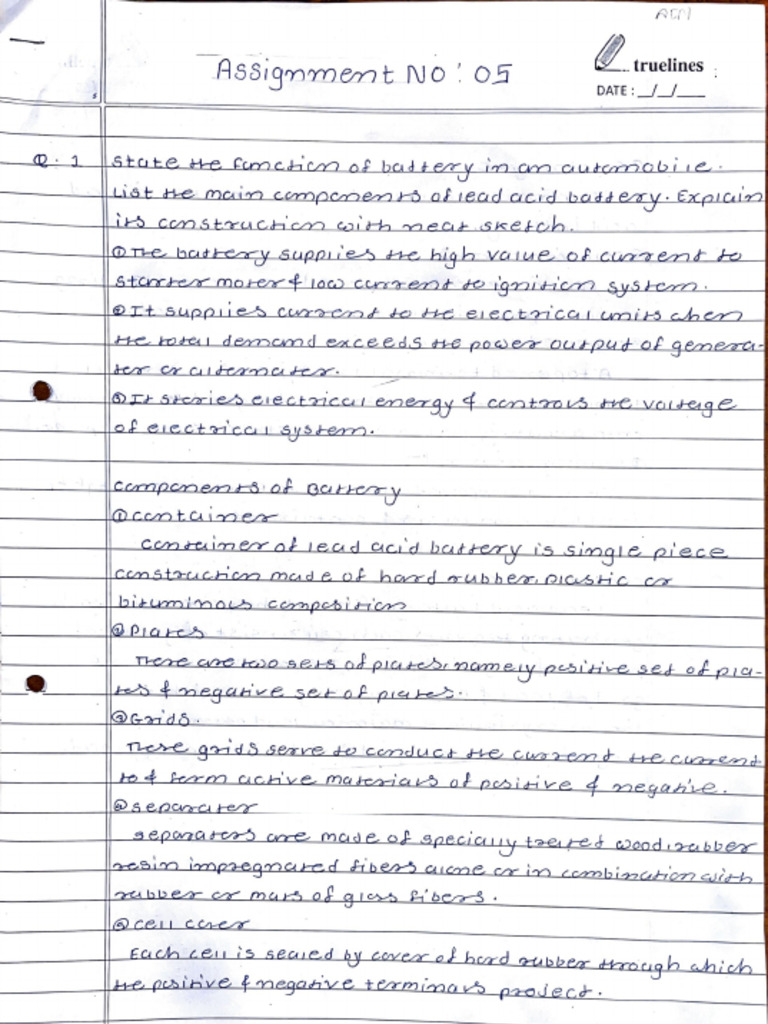 Assignment NO : 05
truelines
DATE : __/__/____
Q. 1 State the function of battery in an automobile.
List the main components of lead acid battery. Explain
its construction with neat sketch.
① The battery supplies the high value of current to
starter moter & low current to ignition system.
② It supplies current to the electrical units when
the total demand exceeds the power output of genera-
ter or alternater.
③ It stories electrical energy & controls the voltage
of electrical system.
components of Battery
① container
container of lead acid battery is single piece
construction made of hard rubber, plastic or
bituminous composition
② Plates
There are two sets of plates, namely positive set of pla-
tes & negative set of plates.
③ Grids.
These grids serve to conduct the current the current
to & form active materials of positive & negative.
④ separater
separaters are made of specially treited wood, rubber
resin impregnated fibers alone or in combination with
rubber or mats of glass fibers.
⑤ cell cover
Each cell is sealed by cover of hard rubber through which
the positive & negative terminals project.